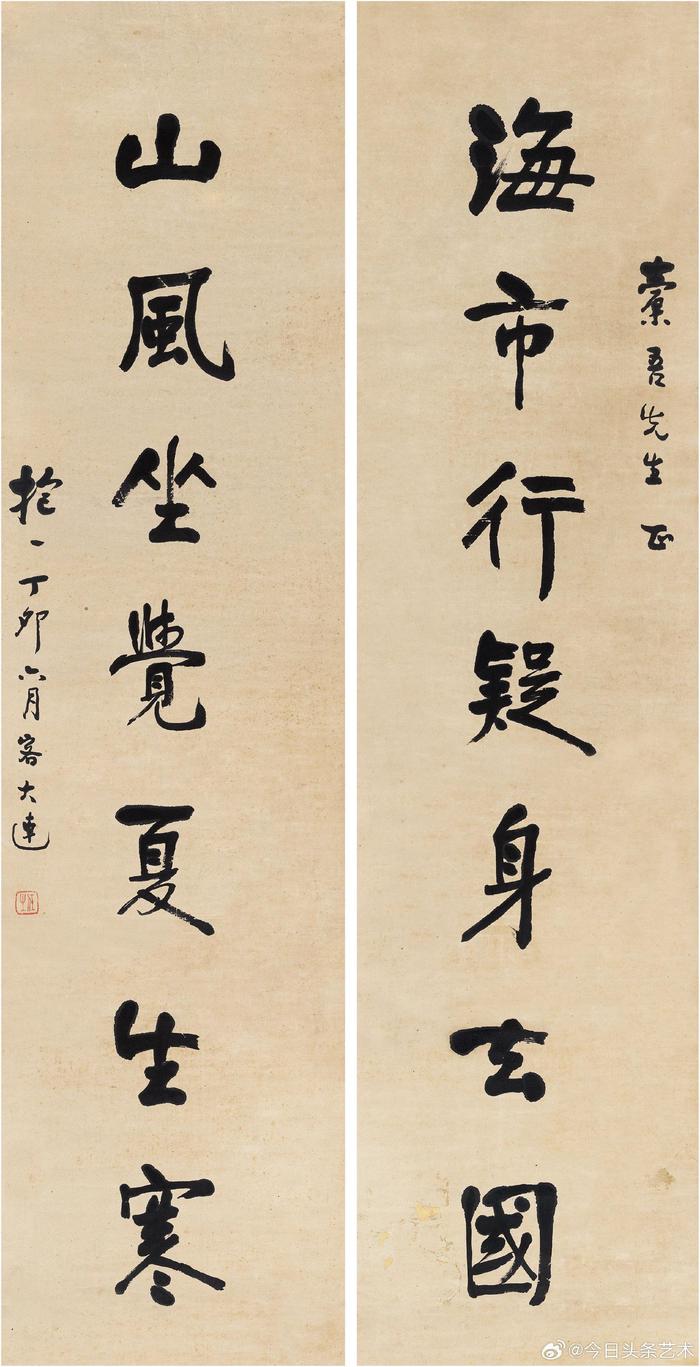 吾先生 正
海市行疑身去國
山風坐覺夏生寒
抱一 丁卯六月客大連
任之
@今日头条艺术